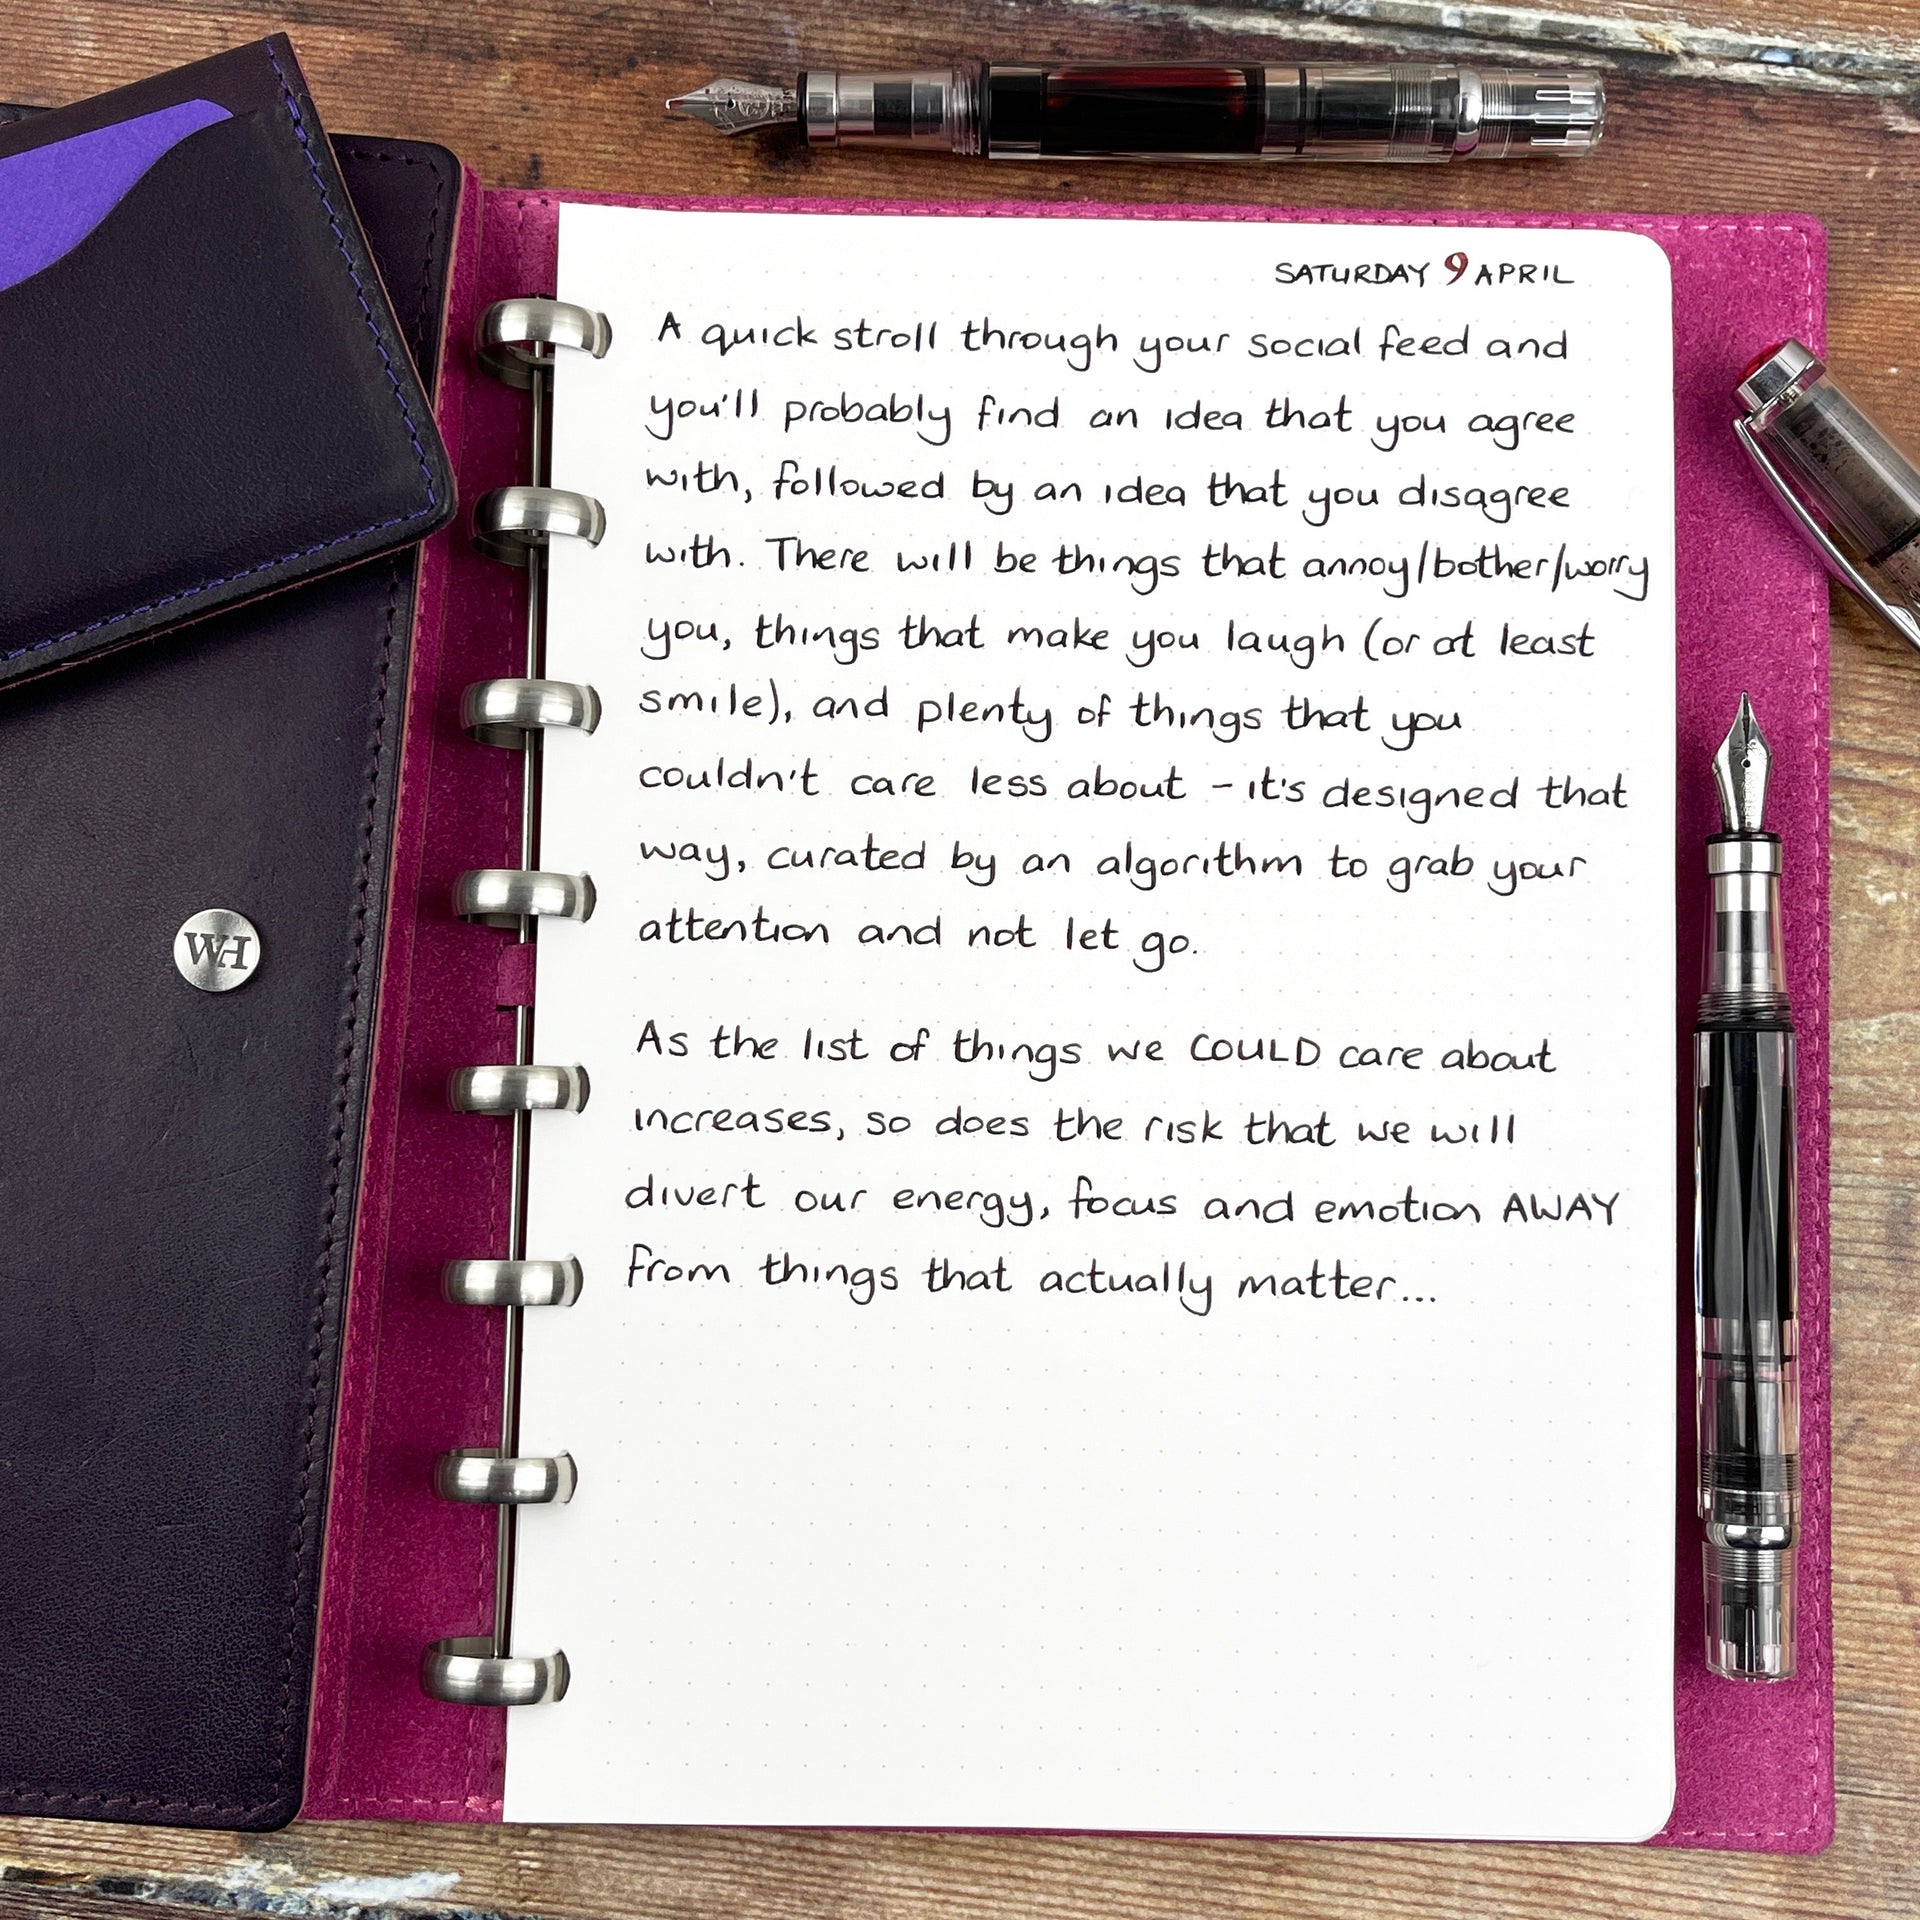 SATURDAY 9 APRIL
A quick stroll through your social feed and
you'll probably find an idea that you agree
with, followed by an idea that you disagree
with. There will be things that annoy/bother/worry
you, things that make you laugh (or at least
smile), and plenty of things that you
couldn't care less about - it's designed that
way, curated by an algorithm to grab your
attention and not let go.
As the list of things we COULD care about
increases, so does the risk that we will
divert our energy, focus and emotion AWAY
from things that actually matter...
WH